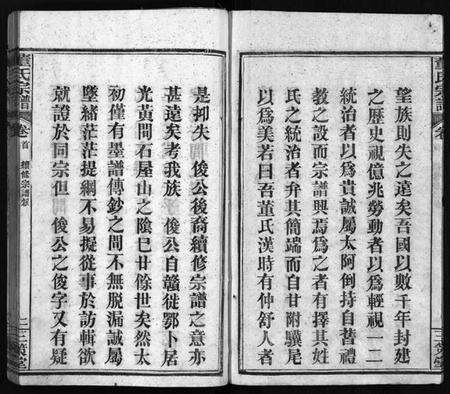 望族則失之遠矣吾國以數千年封建
之歷史視億兆勞動者以爲輕視一二
統治者以爲貴誠屬太阿倒持自替禮
教之設而宗譜興焉爲之者有擇其姓
氏之統治者弁其簡端而自甘附驥尾
以爲美若曰吾董氏漢時有仲舒人者
董氏宗譜
卷
三策堂
董氏宗譜
卷首
續修宗譜叙
二 三策堂
是抑失 俊公後裔續修宗譜之意亦
甚遠矣考我族 俊公自贛徙鄂卜居
光黃間石屋山之陰巳廿餘世矣然太
初僅有墨譜傳鈔之間不無脫漏誠屬
墜緒茫茫提綱不易擬從事於訪輯欲
就證於同宗但 俊公之俊字又有疑